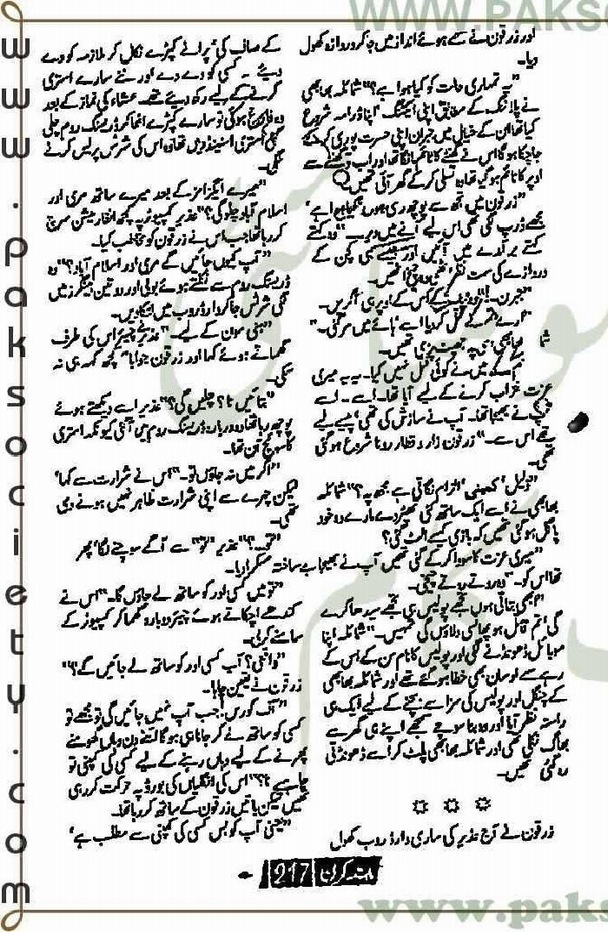 WWW.PAKS
www.paksociety.com
اور زرقون نے سہمے ہوئے انداز میں جا کر دروازہ کھول
دیا۔
"یہ تمہاری حالت کو کیا ہوا ہے؟" شائلہ بھابھی
نے پلاننگ کے مطابق اپنی ایکٹنگ اپنا ڈرامہ شروع
کیا تھا ان کے خیال میں جبران اپنی حسرت پوری کر کے
جا چکا ہوگا اس نے گھنٹے کا ٹائم مانگا تھا اور اب گھنٹے سے
اوپر کا ٹائم ہو گیا تھا وہ تسلی کر کے گھر آئی تھیں۔
"زرقون میں تجھ سے پوچھ رہی ہوں
کہتے برآمدے میں آئیں اور کچن کے
دروازے کی سمت نظر
بھابھی
میں نے کوئی قتل نہیں کیا۔ یہ یہ میری
عزت خراب کرنے کے لیے آیا تھا۔ اسے۔ اسے
آپ نے بھیجا تھا۔ آپ نے سازش کی تھی پیسے لیے
تھے اس سے۔" زرقون زار و قطار رونا شروع ہو گئی
تھی۔
"ذلیل، کمینی، الزام لگاتی ہے مجھ پہ؟" شائلہ
بھابھی نے اسے ایک ساتھ کئی تھپڑ دے مارے وہ خود
پاگل ہو گئی تھیں کہ بازی کیسے الٹ گئی؟
"میری عزت کا سودا کر کے گئی تھیں آپ نے بھیجا
تھا اس کو۔" وہ روتے روتے چیخی۔
"ابھی بتاتی ہوں تجھے پولیس ہی تجھے سیدھا کرے
گی تم قاتل ہو پھانسی دلاؤں گی تمہیں۔" شائلہ اپنا
موبائل ڈھونڈنے لگی اور پولیس کا نام سن کے اس کے
رہے سہے اوسان بھی خطا ہو گئے تھے اور شائلہ بھابھی
کے چنگل اور پولیس کی سزا سے بچنے کے لیے ایک ہی
راستہ نظر آیا اور وہ بنا سوچے سمجھے اپنے ہی گھر سے
بھاگ نکلی تھی اور شائلہ بھابھی پلٹ کر اسے ڈھونڈتی
رہ گئی تھیں۔
☼ ☼ ☼
زرقون نے آج عذیر کی ساری وارڈ روب کھول
کے صاف کی پرانے کپڑے نکال کر ملازمہ کو دے
دیے۔ کسی کو دے دے اور نئے سارے استری
کرنے کے لیے رکھ دیے تھے۔ عشاء کی نماز کے بعد
وہ فارغ ہو گئی تو سارے کپڑے اٹھا کر ڈریسنگ روم چلی
گئی استری اسٹینڈ وہیں تھا وہ اس کی شرٹس پریس کرنے
لگی۔
"میرے ایگزامز کے بعد میرے ساتھ مری اور
اسلام آباد چلو گی؟" عذیر کمپیوٹر پہ کچھ انفارمیشن سرچ
کر رہا تھا جب اس نے زرقون کو مخاطب کیا۔
"آپ کیوں جائیں گے مری اور اسلام آباد؟" وہ
ڈریسنگ روم سے نکلتے ہوئے بولی اور دو تین ہینگرز میں
لگی شرٹس جا کر وارڈ روب میں لٹکا دیں۔
"ہنی مون کے لیے۔" عذیر چیئر اس کی طرف
گھماتے ہوئے کہا اور زرقون جواباً کچھ کہہ ہی نہ
سکی۔
"بتائیں نا؟ چلیں گی؟" عذیر اسے دیکھتے ہوئے
پوچھ رہا تھا وہ دوبارہ ڈریسنگ روم میں آ گئی کیونکہ استری
کا سوئچ آن تھا۔
"اگر میں نہ جاؤں تو۔" اس نے شرارت سے کہا
لیکن چہرے سے اپنی شرارت ظاہر نہیں ہونے دی
تھی۔
"تو۔۔؟" عذیر "تو" سے آگے سوچنے لگا پھر
بے ساختہ مسکرا دیا۔
"تو میں کسی اور کو ساتھ لے جاؤں گا۔" اس نے
کندھے اچکاتے ہوئے چیئر دوبارہ گھما کر کمپیوٹر کے
سامنے کر لی۔
"واقعی؟ آپ کسی اور کو ساتھ لے جائیں گے؟"
زرقون نے یقین چاہا۔
"آف کورس! جب آپ نہیں جائیں گی تو مجھے تو
کسی کو ساتھ لے کر جانا ہی ہوگا اتنے دن وہاں گھومنے
پھرنے کے لیے وہاں رہنے کے لیے کسی کی کمپنی تو
چاہیے نا؟" اس کی انگلیاں کی بورڈ پہ حرکت کر رہی
تھیں لیکن باتیں زرقون کے ساتھ کر رہا تھا۔
"یعنی آپ کو بس کسی کی کمپنی سے مطلب ہے'
ماہنامہ کرن 217
www.paks